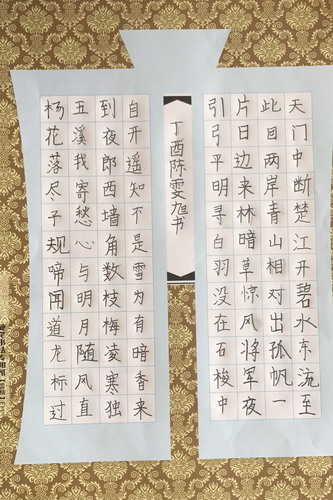 天门中断楚江开碧水东流至
此回两岸青山相对出孤帆一
片日边来林暗草惊风将军夜
引弓平明寻白羽没在石梭中
丁酉陈雯旭书
杨花落尽子规啼闻道龙标过
五溪我寄愁心与明月随风直
到夜郎西墙角数枝梅凌寒独
自开遥知不是雪为有暗香来